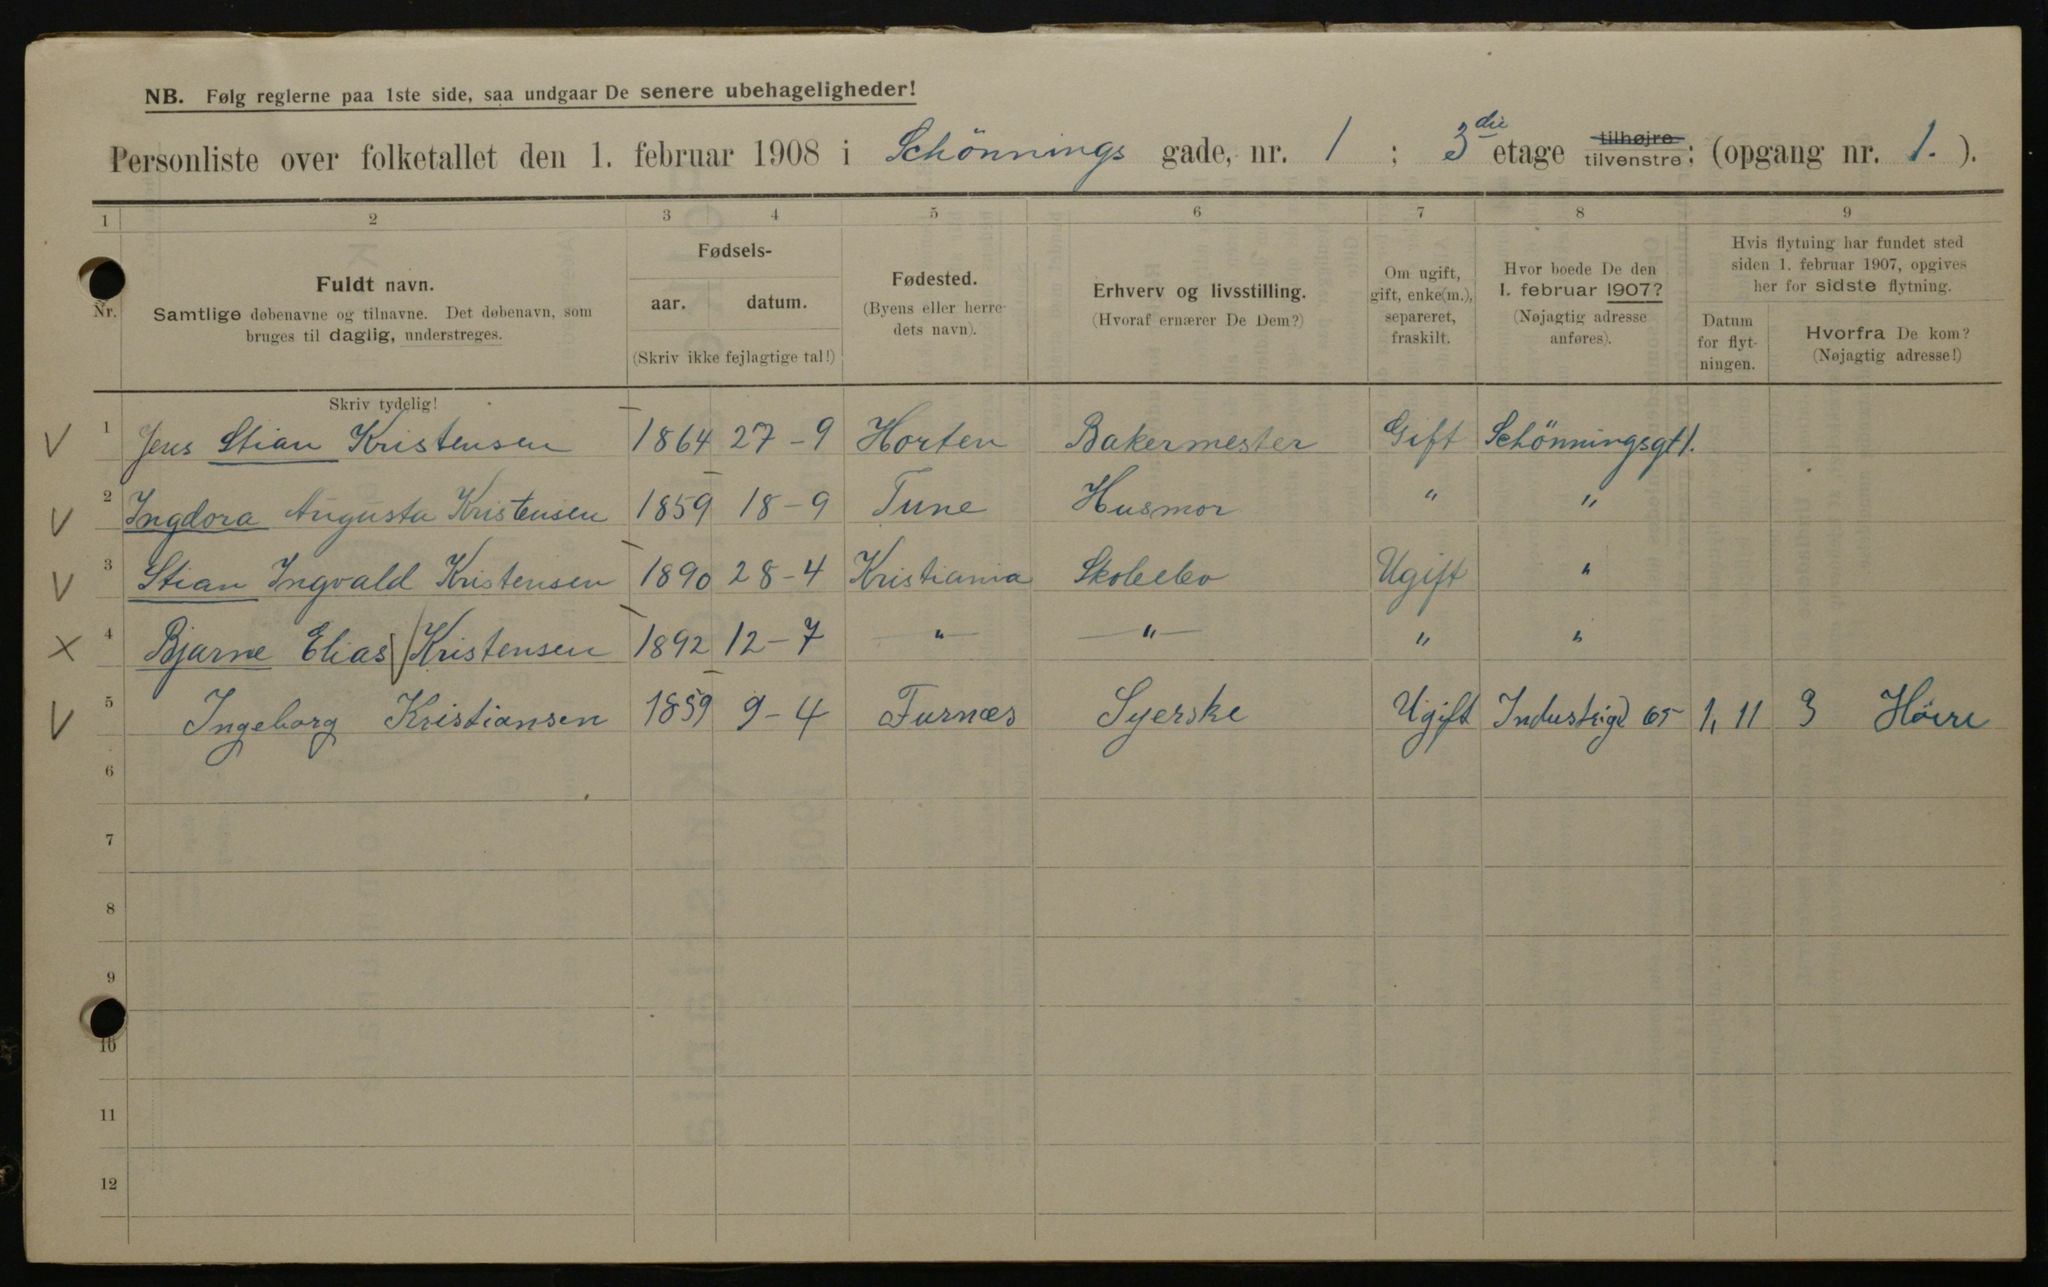 NB. Følg reglerne paa 1ste side, saa undgaar De senere ubehageligheder!
Personliste over folketallet den 1. februar 1908 i Schönnings gade, nr. 1 ; 3die etage tilhøjre tilvenstre ; (opgang nr. 1. ).
1 2 3 4 5 6 7 8 9
Nr.
Fuldt navn.
Samtlige døbenavne og tilnavne. Det døbenavn, som
bruges til daglig, understreges.
Skriv tydelig!
Fødsels-
aar. datum.
(Skriv ikke fejlagtige tal!)
Fødested.
(Byens eller herre-
dets navn).
Erhverv og livsstilling.
(Hvoraf ernærer De Dem?)
Om ugift,
gift, enke(m.),
separeret,
fraskilt.
Hvor boede De den
1. februar 1907?
(Nøjagtig adresse
anføres).
Hvis flytning har fundet sted
siden 1. februar 1907, opgives
her for sidste flytning.
Datum
for flyt-
ningen.
Hvorfra De kom?
(Nøjagtig adresse!)
V 1 Jens Stian Kristensen 1864 27-9 Horten Bakermester Gift Schönningsgt 1.
V 2 Ingdora Augusta Kristensen 1859 18-9 Tune Husmor " "
V 3 Stian Ingvald Kristensen 1890 28-4 Kristiania Skoleelev Ugift "
X 4 Bjarne Elias Kristensen 1892 12-7 — " — — " — " "
V 5 Ingeborg Kristiansen 1859 9-4 Furnæs Syerske Ugift Industrigd 65 1, 11 3 Höire
6
7
8
9
10
11
12